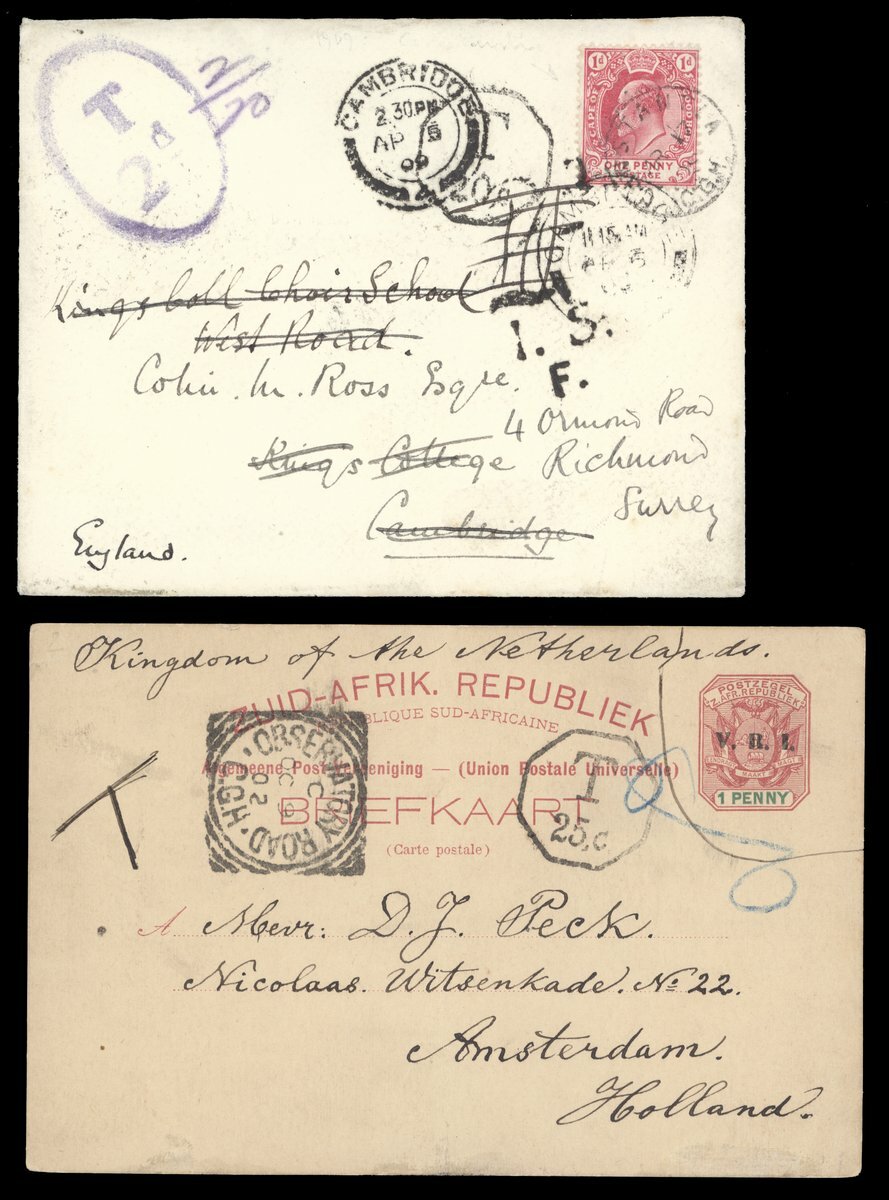 T
2d
2/9
CAMBRIDGE
2.30PM
AP 5
09
2
T
20c
1d 1d
CAPE OF GOOD HOPE
ONE PENNY
POSTAGE
C.G.H.
11.15 AM
AP 5
I. S.
F.
Kings Coll Choir School
West Road.
Colin. M. Ross Esqre.
4 Ormond Road
Kings College Richmond
Surrey
Cambridge
England.
Kingdom of the Netherlands.
ZUID-AFRIK. REPUBLIEK
RÉPUBLIQUE SUD-AFRICAINE
Algemeene Postvereeniging — (Union Postale Universelle)
BRIEFKAART
(Carte postale)
POSTZEGEL
Z. AFR. REPUBLIEK
V. R. I.
EENDRAGT MAAKT MAGT
1 PENNY
OBSERVATORY ROAD. C.G.H.
OC 9
02
T
T
25.c
A Mevr: D. J. Peck.
Nicolaas. Witsenkade. No 22.
Amsterdam.
Holland.